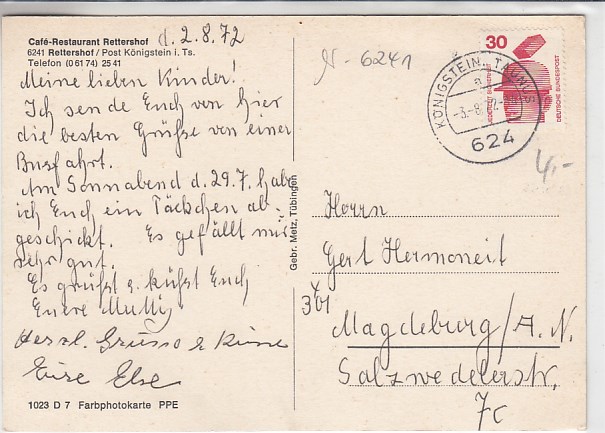 Café-Restaurant Rettershof
6241 Rettershof / Post Königstein i. Ts.
Telefon (0 61 74) 25 41
d. 2.8.72
Meine lieben Kinder!
Ich sende Euch von hier
die besten Grüße von einer
Busfahrt.
Am Sonnabend d. 29.7. habe
ich Euch ein Päckchen ab-
geschickt. Es gefällt mir
sehr gut.
Es grüßt u. küßt Euch
Euere Mutti
Herzl. Grüsse u. Küsse
Eure Else
1023 D 7 Farbphotokarte PPE
Gebr. Metz, Tübingen
6241
30
DEUTSCHE BUNDESPOST
KÖNIGSTEIN, TAUNUS
a
624
4,-
Herrn
Gert Hermoneit
301
Magdeburg/A. N.
Salzwedelerstr.
7c